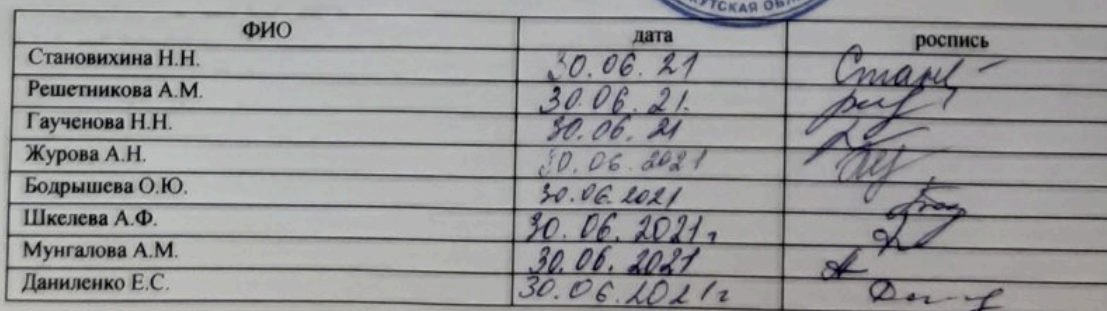 КУТСКАЯ ОБЛ
ФИО дата роспись
Становихина Н.Н. 30.06.21 Стан
Решетникова А.М. 30.06.21.
Гаученова Н.Н. 30.06.21
Журова А.Н. 30.06.2021
Бодрышева О.Ю. 30.06.2021
Шкелева А.Ф. 30.06.2021г
Мунгалова А.М. 30.06.2021
Даниленко Е.С. 30.06.2021г